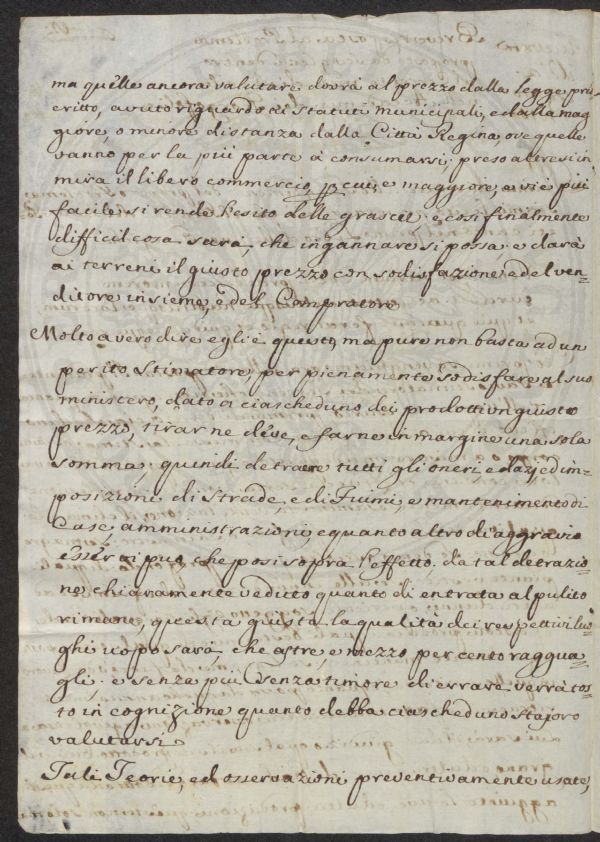 ma quelle ancora valutare dovrà al prezzo dalla legge pres
critto, avuto riguardo ai statuti municipali, e dalla mag
giore, o minore distanza dalla Città Regina, ove quelle
vanno per la più parte à consumarsi; preso altresi in
mira il libero commercio, per cui e maggiore, e vi è più
facile si rende l'esito delle grascie; e cosi finalmente
difficil cosa sarà, che ingannare si possa; e darà
ai terreni il giusto prezzo con sodisfazione, e del ven-
ditore insieme, e del Compratore
Molto a vero dire egli è questo, ma pure non basta ad un
perito Stimatore, per pienamente sodisfare al suo
ministero, dato a ciascheduno dei prodotti un giusto
prezzo, tirar ne deve, e farne in margine una sola
somma; quindi detraere tutti gli oneri, e dazj, ed im-
posizioni di Strade, e di Fiumi, e mantenimento di
Case, amministrazioni, e quanto altro di aggravio
esser vi può, che posi sopra l'effetto; da tal detrazio
ne chiaramente veduto quanto di entrata al pulito
rimane, questa giusta la qualità dei respettivi luo
ghi uopo sarà, che a tre, e mezzo per cento raggua
gli; e senza più senza timore di errare, verrà tos
to in cognizione quanto debba ciascheduno Stajoro
valutarsi
Tali Teorie, ed osservazioni preventivamente usate,